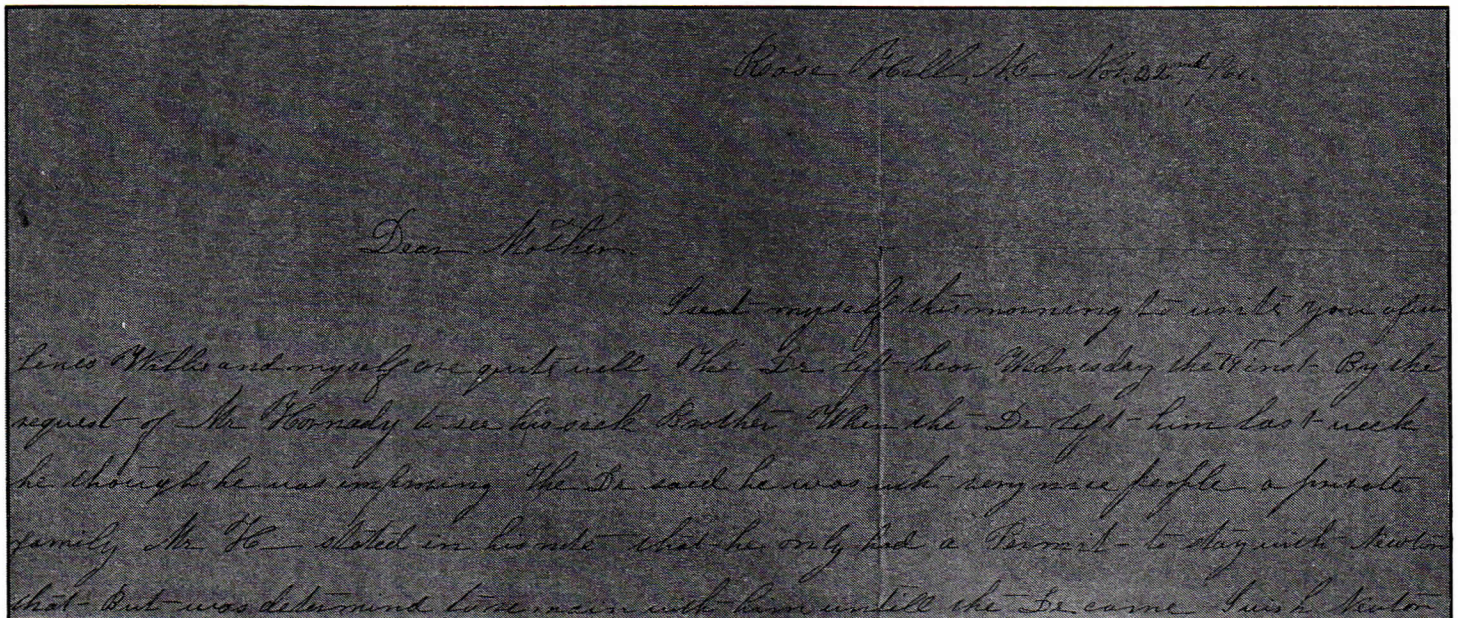 Rose Hill, N.C. Nov. 22nd, /61.
Dear Mother.
I seat myself this morning to write you a few
lines Willie and myself are quite well The Dr left hear Wednesday the inst By the
request of Mr Hornady to see his sick Brother When the Dr left him last week
he though he was improving The Dr said he was with very nice people a private
family Mr H stated in his note that he only had a Permit to stay with Newton
that But was determind to remain with him untill the Dr came I wish Newton